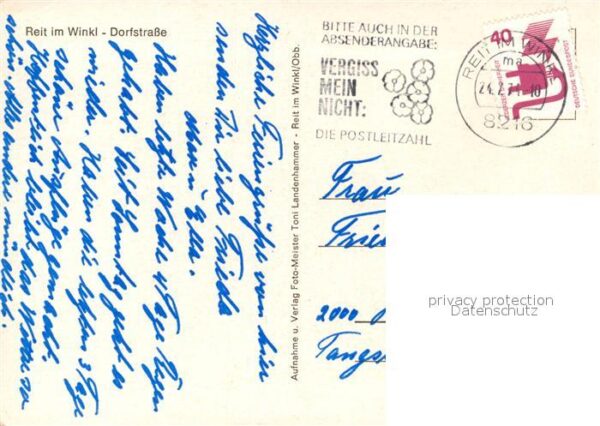 Reit im Winkl - Dorfstraße
Herzliche Feriengrüße von hier
sendet Dir liebe Frieda
Deine Ella.
Haben letzte Woche 4 Tage Regen
gehabt. Seit Samstag geht es
wieder. Haben die letzten 3 Tage
schöne Ausflüge gemacht.
Hoffentlich bleibt das Wetter so
schön. Alles andere mündlich.
Aufnahme u. Verlag Foto-Meister Toni Landenhammer - Reit im Winkl/Obb.
BITTE AUCH IN DER
ABSENDERANGABE:
VERGISS
MEIN
NICHT:
DIE POSTLEITZAHL
REIT IM WINKL
ma
8216
40
DEUTSCHE BUNDESPOST
Frau
Frie
2000
Tangs
privacy protection
Datenschutz